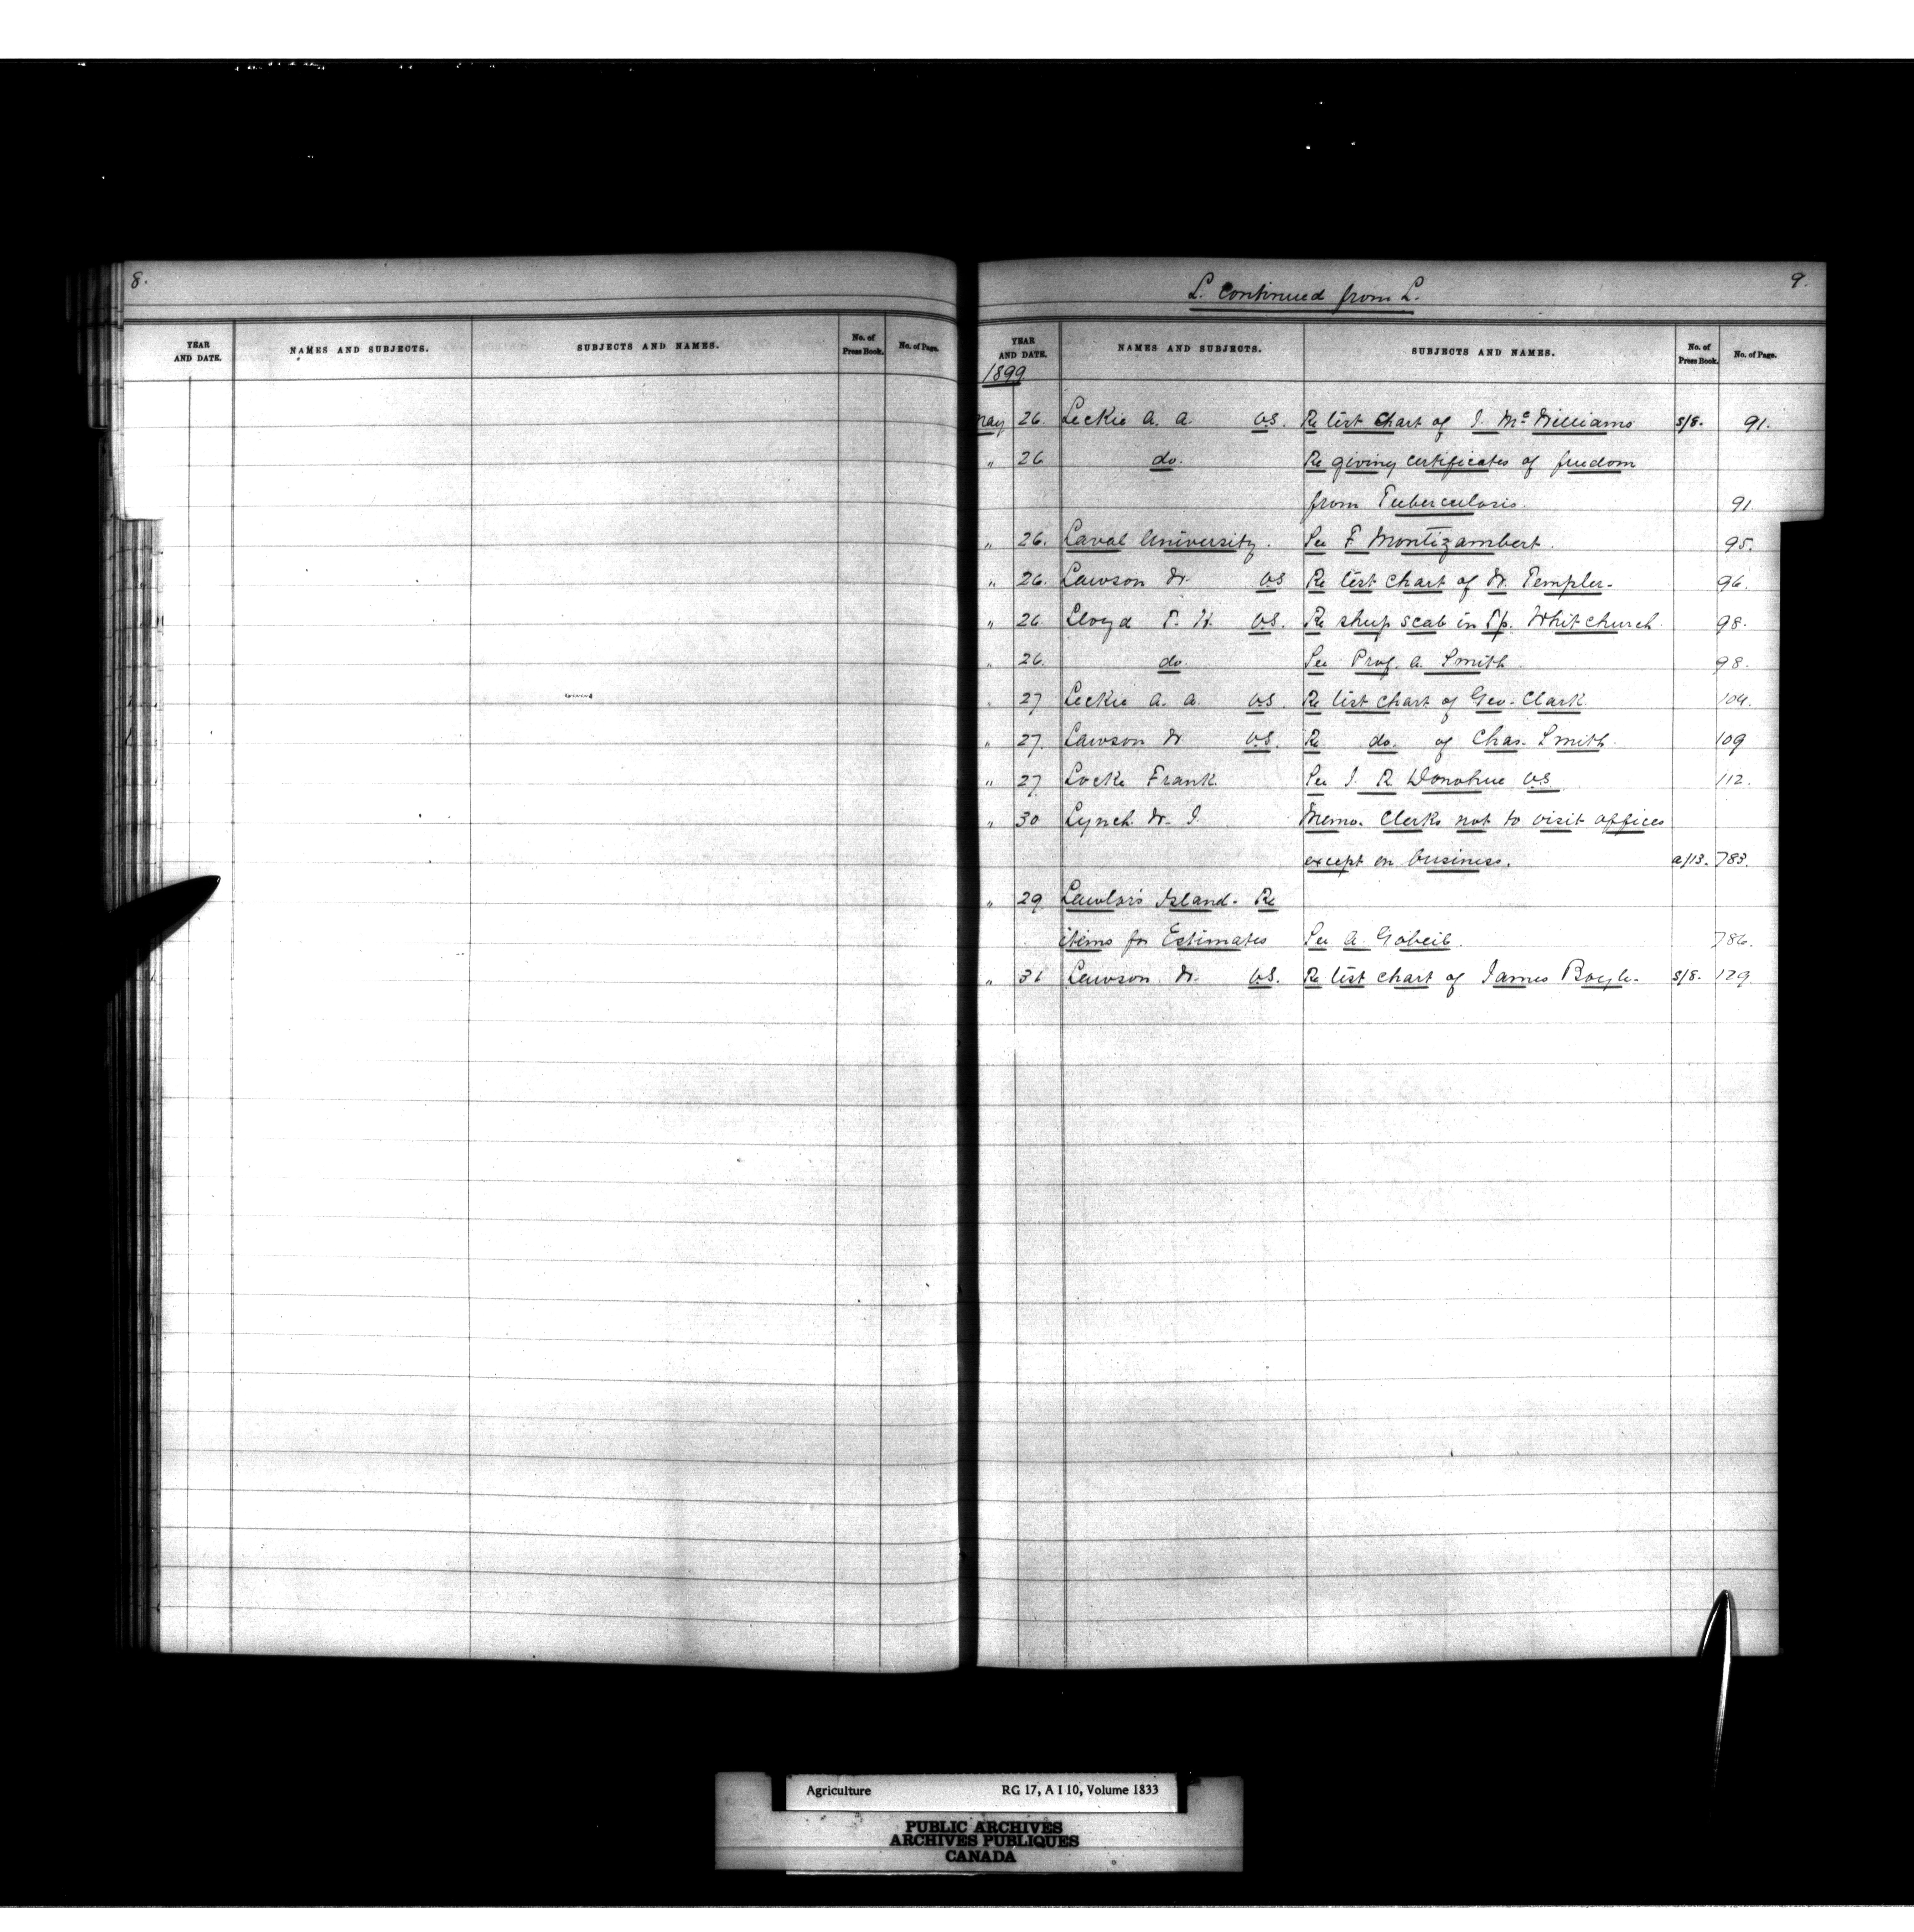 8.
YEAR AND DATE. NAMES AND SUBJECTS. SUBJECTS AND NAMES. No. of Press Book. No. of Page.
L. Continued from L. 9.
YEAR AND DATE. NAMES AND SUBJECTS. SUBJECTS AND NAMES. No. of Press Book. No. of Page.
1899
May 26. Leckie A. A. V.S. Re test chart of J. McWilliams s/8. 91.
" 26 do. Re giving certificates of freedom
from Tuberculosis. 91
" 26. Laval University. See F Montizambert. 95.
" 26. Lawson W. VS Re test chart of W. Templer- 96.
" 26. Lloyd T. H. V.S. Re sheep scab in Tp. Whitchurch 98.
" 26. do. See Prof. A. Smith. 98.
" 27 Leckie A. A. V.S. Re test chart of Geo. Clark. 104.
" 27. Lawson W V.S. Re do. of Chas. Smith. 109
" 27. Locke Frank. See J. R. Donohue V.S. 112.
" 30 Lynch W. J. Memo. Clerks not to visit offices
except on business. a/13. 783.
" 29. Lawlor's Island- Re
items for Estimates See A. Gobeil. 786.
" 31 Lawson. W. V.S. Re test chart of James Boyle- s/8. 129.
Agriculture RG 17, A I 10, Volume 1833
PUBLIC ARCHIVES
ARCHIVES PUBLIQUES
CANADA